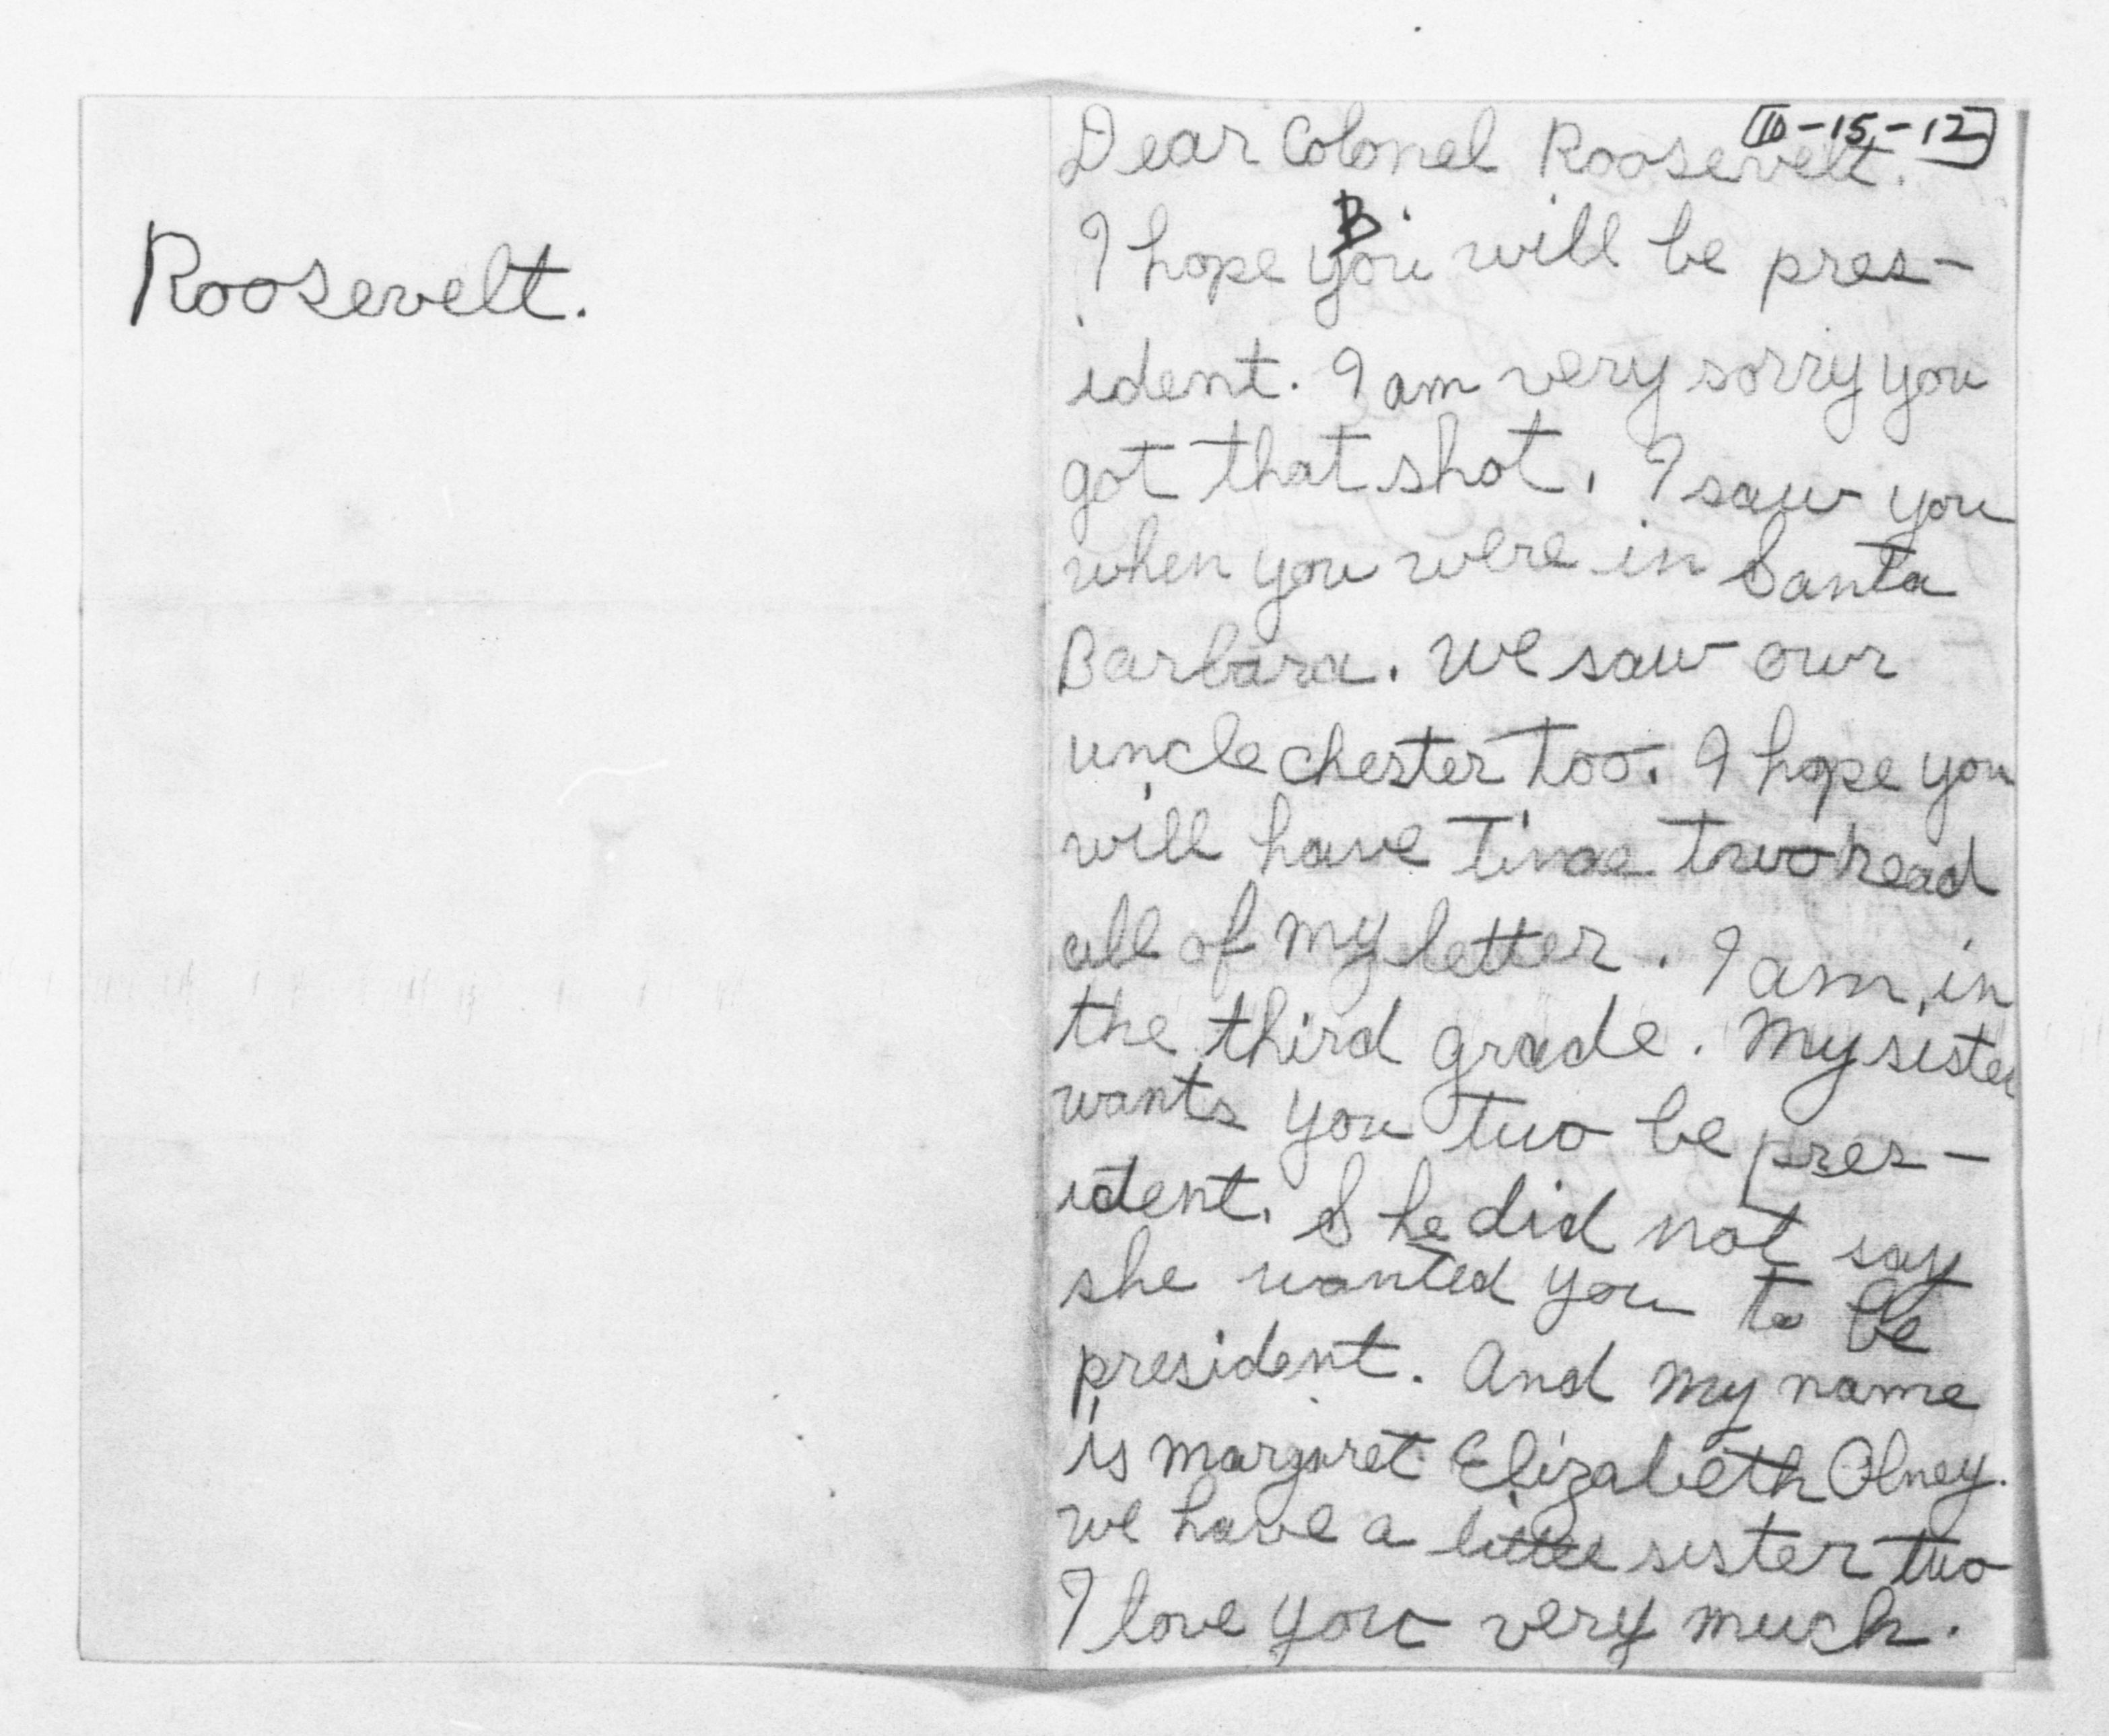 Roosevelt.
[10-15-12]
Dear Colonel Roosevelt.
B
I hope you will be pres-
ident. I am very sorry you
got that shot. I saw you
when you were in Santa
Barbara. we saw our
uncle chester too. I hope you
will have time two read
all of my letter. I am in
the third grade. My sister
wants you two be pres-
ident. She did not say
she wanted you to be
president. And my name
is margaret Elizabeth Olney.
we have a little sister two
I love you very much.